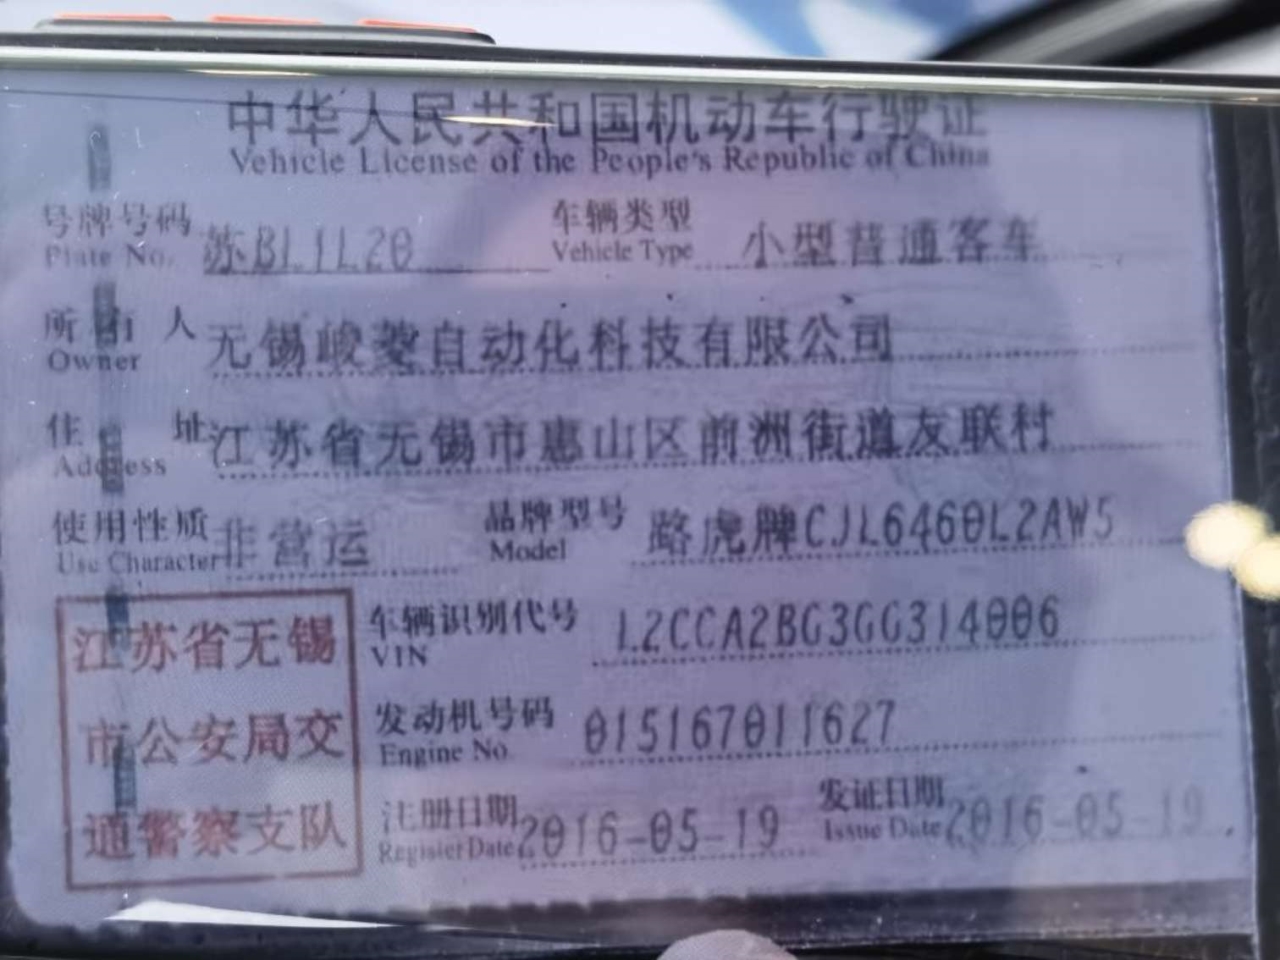 中华人民共和国机动车行驶证
Vehicle License of the People's Republic of China
号牌号码 苏BL1L20 车辆类型 小型普通客车
Plate No. Vehicle Type
所有人 无锡峻菱自动化科技有限公司
Owner
住址 江苏省无锡市惠山区前洲街道友联村
Address
使用性质 非营运 品牌型号 路虎牌CJL6460L2AW5
Use Character Model
江苏省无锡 车辆识别代号 L2CCA2BG3GG314006
VIN
市公安局交 发动机号码 015167011627
Engine No.
通警察支队 注册日期 2016-05-19 发证日期 2016-05-19
Register Date Issue Date